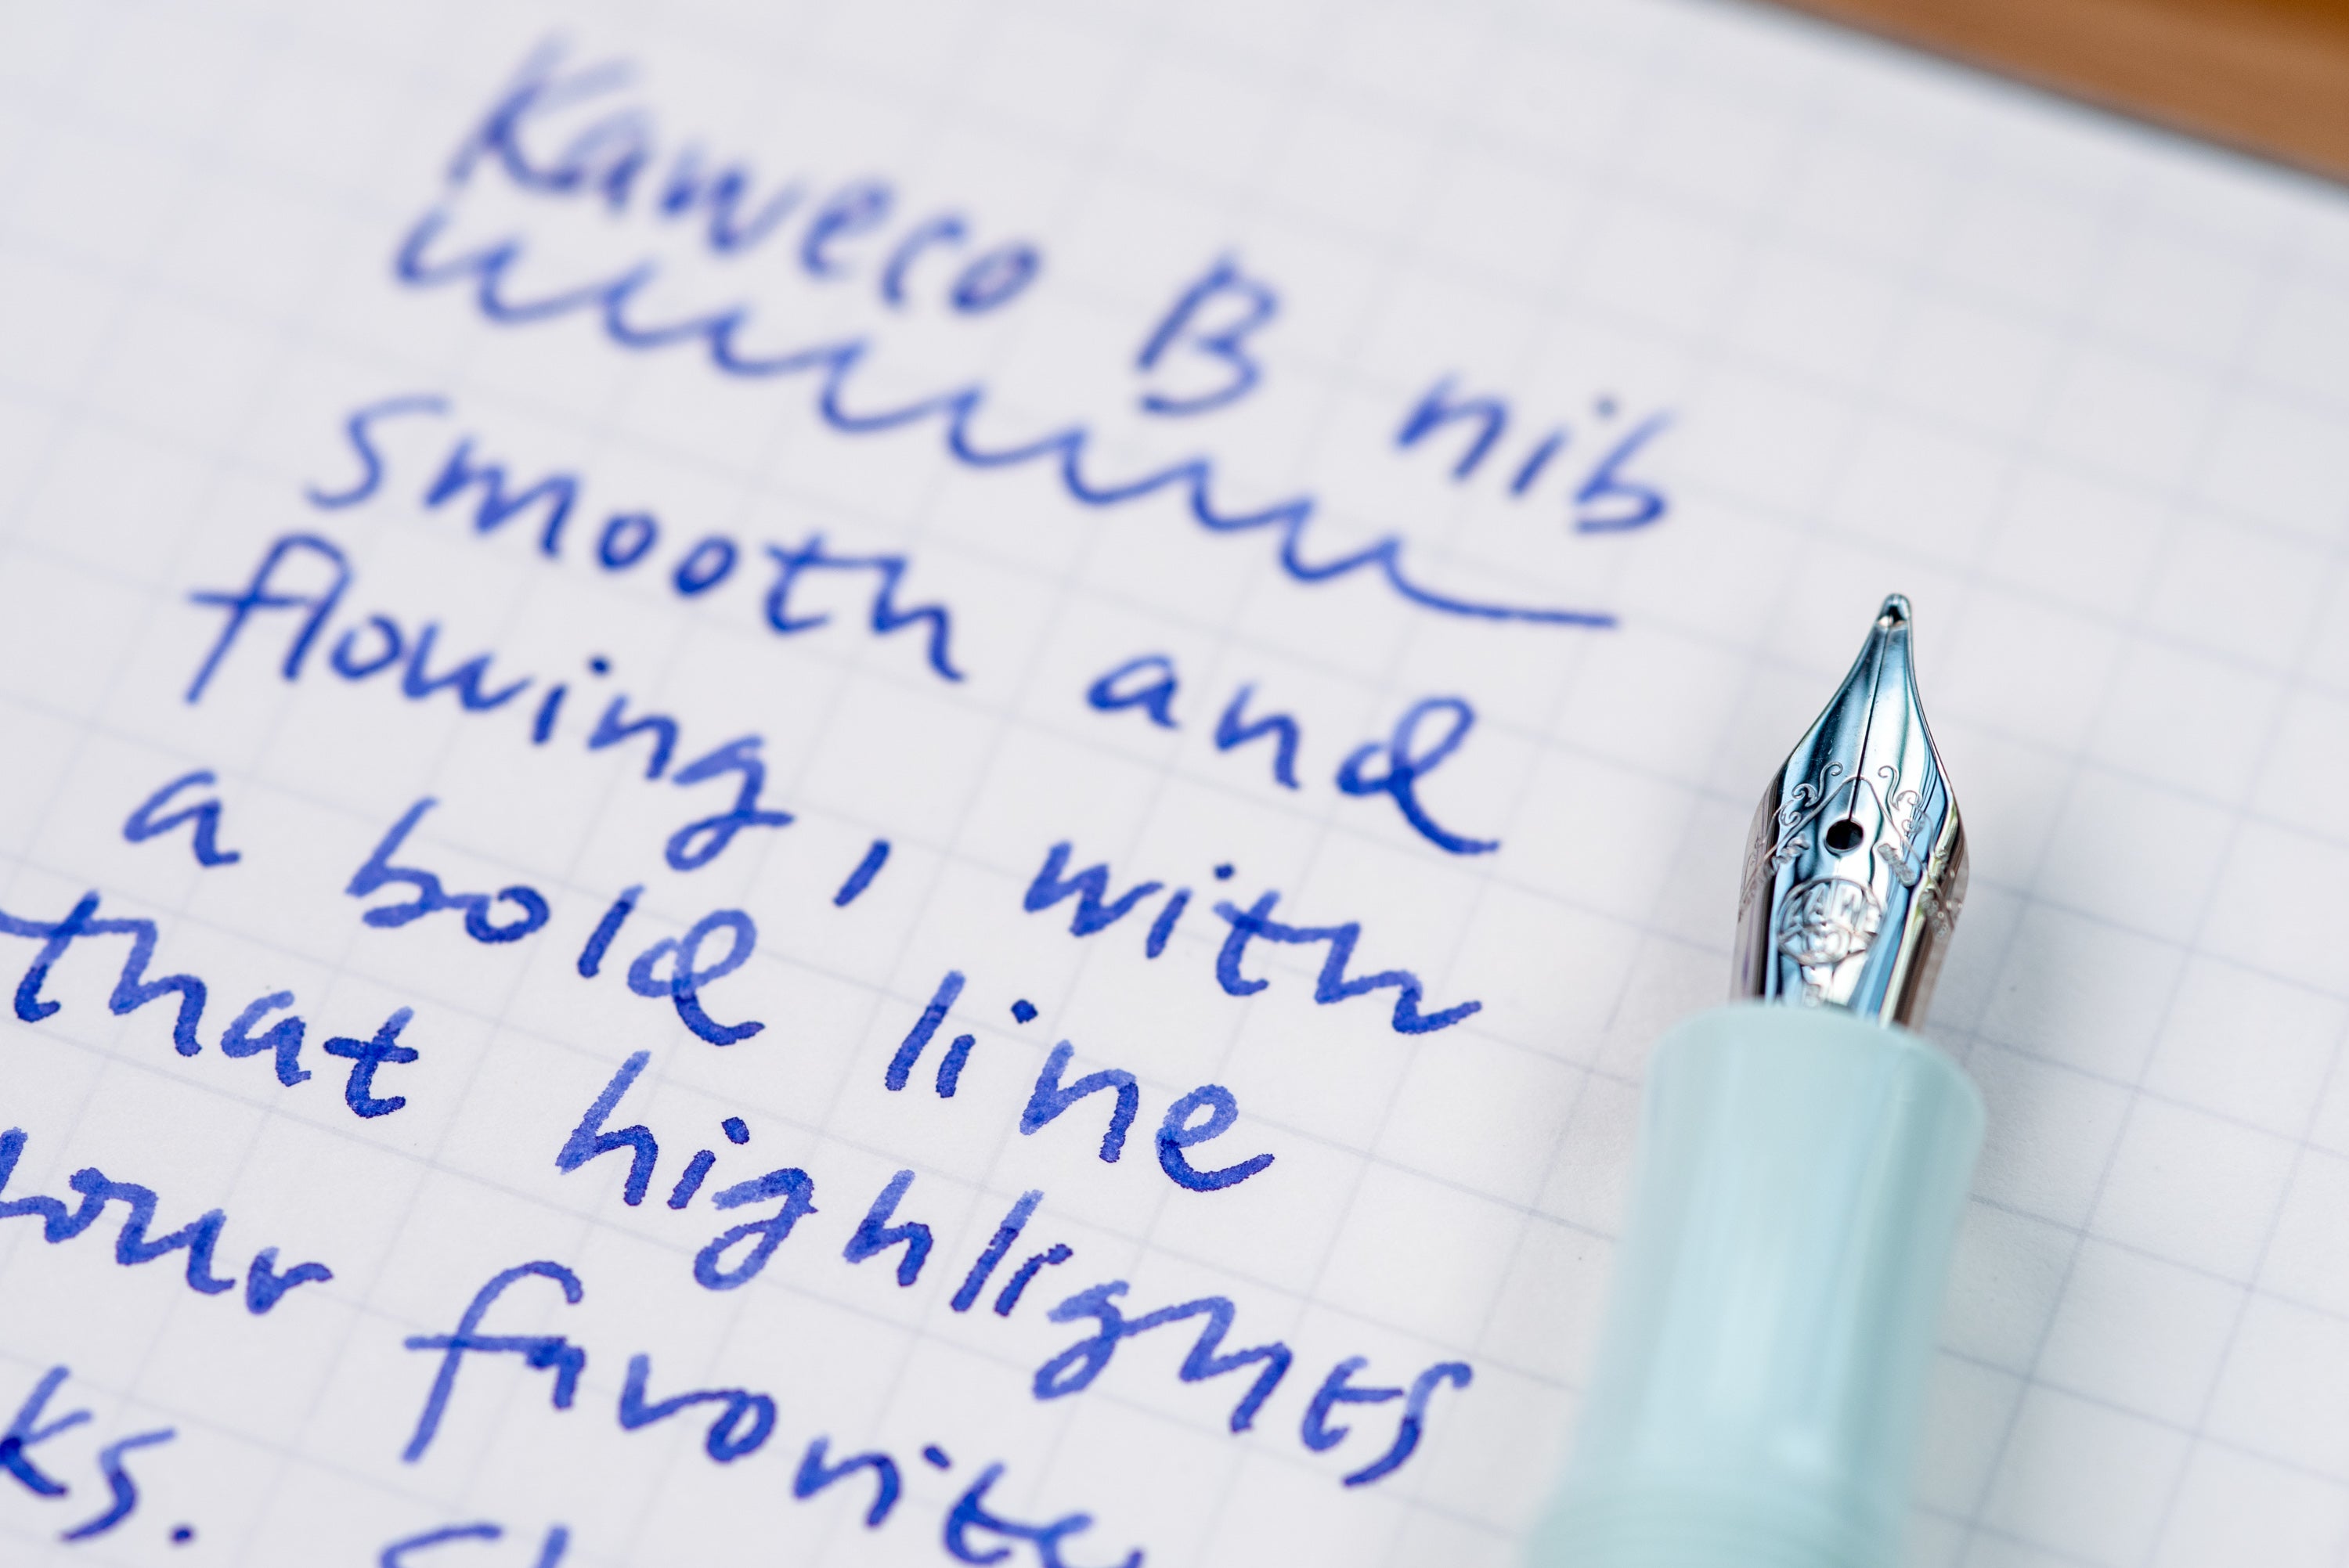 Kaweco B nib
smooth and
flowing, with
a bold line
that highlights
your favorite
ks.